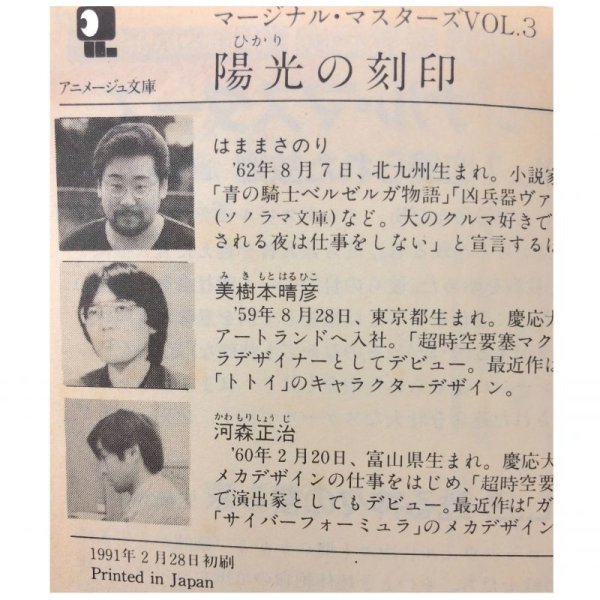 マージナル・マスターズVOL.3
ひかり
陽光の刻印
アニメージュ文庫
はままさのり
'62年8月7日、北九州生まれ。小説家
「青の騎士ベルゼルガ物語」「凶兵器ヴァ
(ソノラマ文庫)など。大のクルマ好きで
される夜は仕事をしない」と宣言するほ
みきもとはるひこ
美樹本晴彦
'59年8月28日、東京都生まれ。慶応大
アートランドへ入社。「超時空要塞マク
ラデザイナーとしてデビュー。最近作は
「トトイ」のキャラクターデザイン。
かわもりしょうじ
河森正治
'60年2月20日、富山県生まれ。慶応大
メカデザインの仕事をはじめ、「超時空要
で演出家としてもデビュー。最近作は「ガ
「サイバーフォーミュラ」のメカデザイン
1991年2月28日初刷
Printed in Japan